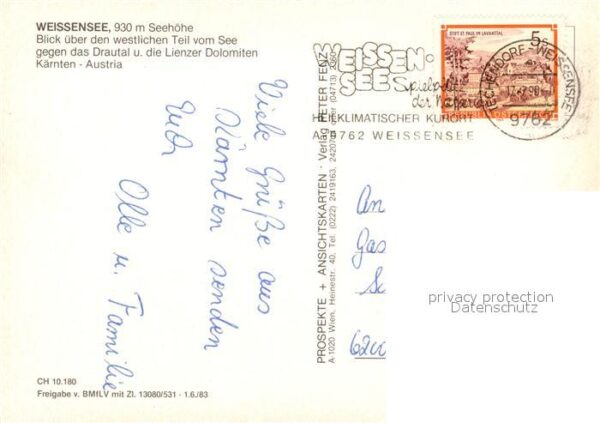 WEISSENSEE, 930 m Seehöhe
Blick über den westlichen Teil vom See
gegen das Drautal u. die Lienzer Dolomiten
Kärnten - Austria
Viele Grüße aus
Kärnten senden
Euch
Olle u. Familie
CH 10.180
Freigabe v. BMfLV mit Zl. 13080/531 - 1.6./83
PROSPEKTE + ANSICHTSKARTEN · Verlag PETER FENZ
A-1020 Wien, Heinestr. 40, Tel. (0222) 2419163,
WEISSEN-
SEE
Spielplatz
der Natur
HEILKLIMATISCHER KURORT
A-9762 WEISSENSEE
STIFT ST. PAUL IM LAVANTTAL
5 S
TECHENDORF-WEISSENSEE
9762
An
Gas
privacy protection
Datenschutz